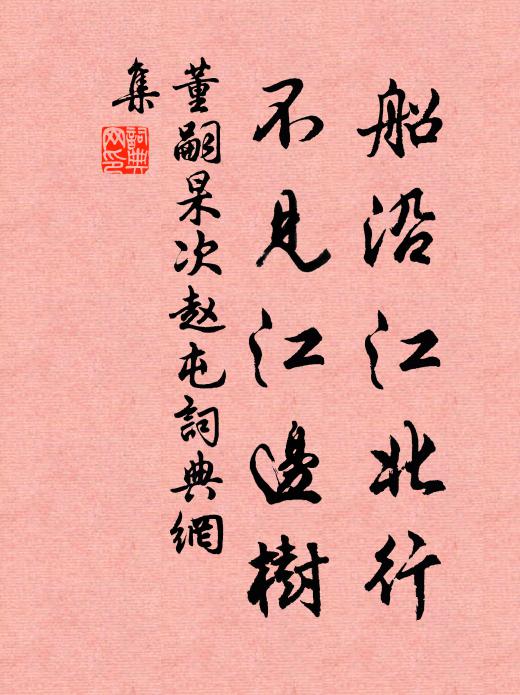 船沿江北行
不見江邊樹
董嗣杲次赵屯詞典網
集
詞典
网印